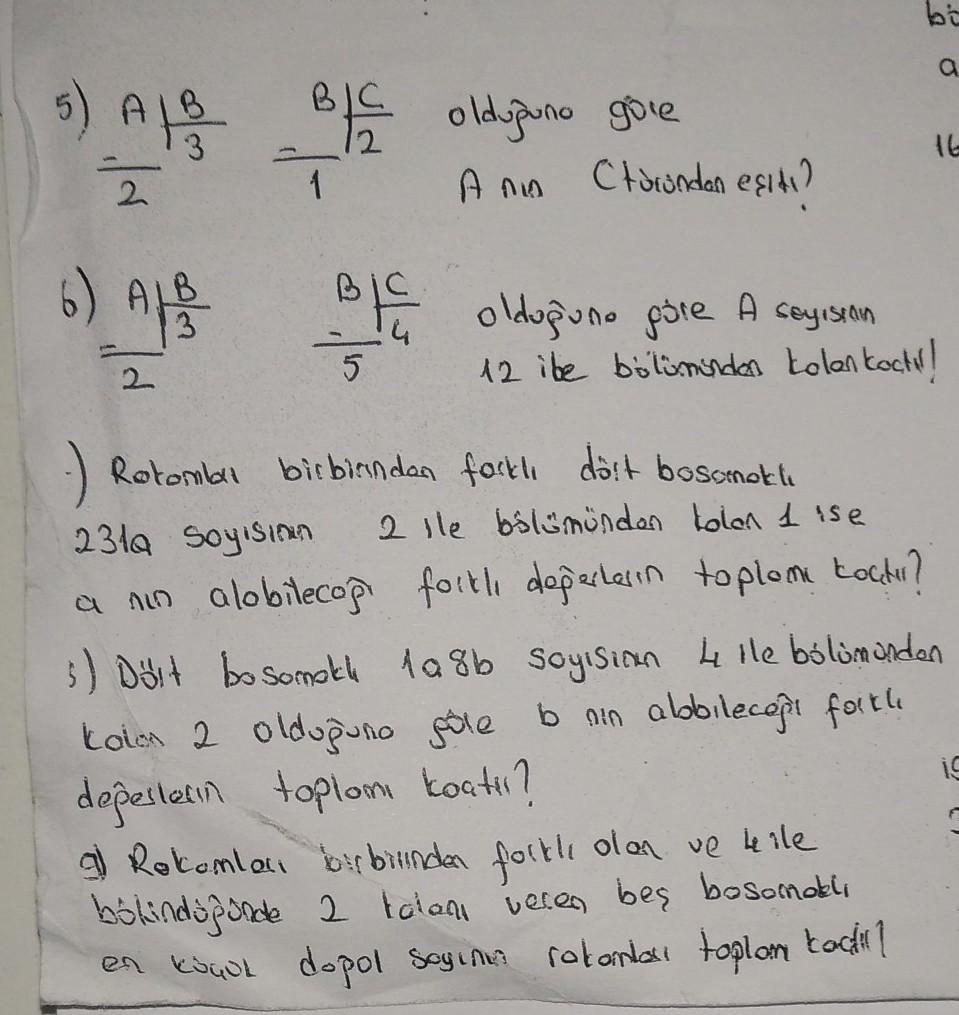 bö
a
16
5) A | B B | C olduğuna göre
3 2
- -
2 1 A nın C türünden eşiti?
6) A | B B | C olduğuna göre A sayısının
3 4
- -
2 5 12 ile bölümünden kalan kaçtır!
.) Rakamları birbirinden farklı dört basamaklı
231a sayısının 2 ile bölümünden kalan 1 ise
a nın alabileceği farklı değerlerin toplamı kaçtır?
8) Dört basamaklı 1a8b sayısının 4 ile bölümünden
kalan 2 olduğuna göre b nın alabileceği farklı
değerlerin toplamı kaçtır?
9) Rakamları birbirinden farklı olan ve 4 ile
bölündüğünde 2 kalanı veren beş basamaklı
en küçük doğal sayının rakamları toplamı kaçtır?